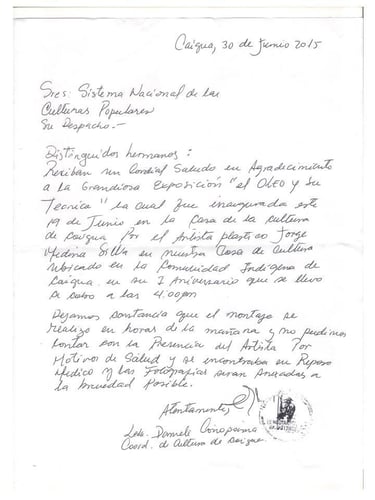 Caigua, 30 de Junio 2015
Sres: Sistema Nacional de las
Culturas Populares
Su Despacho.-
Distinguidos hermanos:
Reciban un Cordial Saludo en Agradecimiento
a la Grandiosa Exposición "el OLEO y su
Tecnica" la cual fue inaugurada este
19 de Junio en la Casa de la Cultura
de Caigua Por el Artista plastico Jorge
Medina Silva en nuestra Casa de Cultura
Ubicado en la Comunidad Indígena de
Caigua en su I Aniversario que se llevo
a las 4:00pm
Dejamos constancia que el montaje se
realizo en horas de la mañana y no pudimos
Contar con la Presencia del Artista Por
Motivo de Salud y se encontraba en Reposo
Medico y las Fotografias seran Anexadas a
la brevedad Posible.
Atentamente,
Coord. de Cultura de Caigua